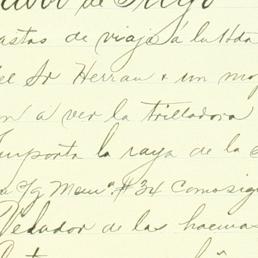 de Trigo
astos de viaje á la Hda
el Sr Herran & un mo
n a ver la trilladora
Importa la raya de la
Mem.ª #34 Como sig
Velador de las hacien